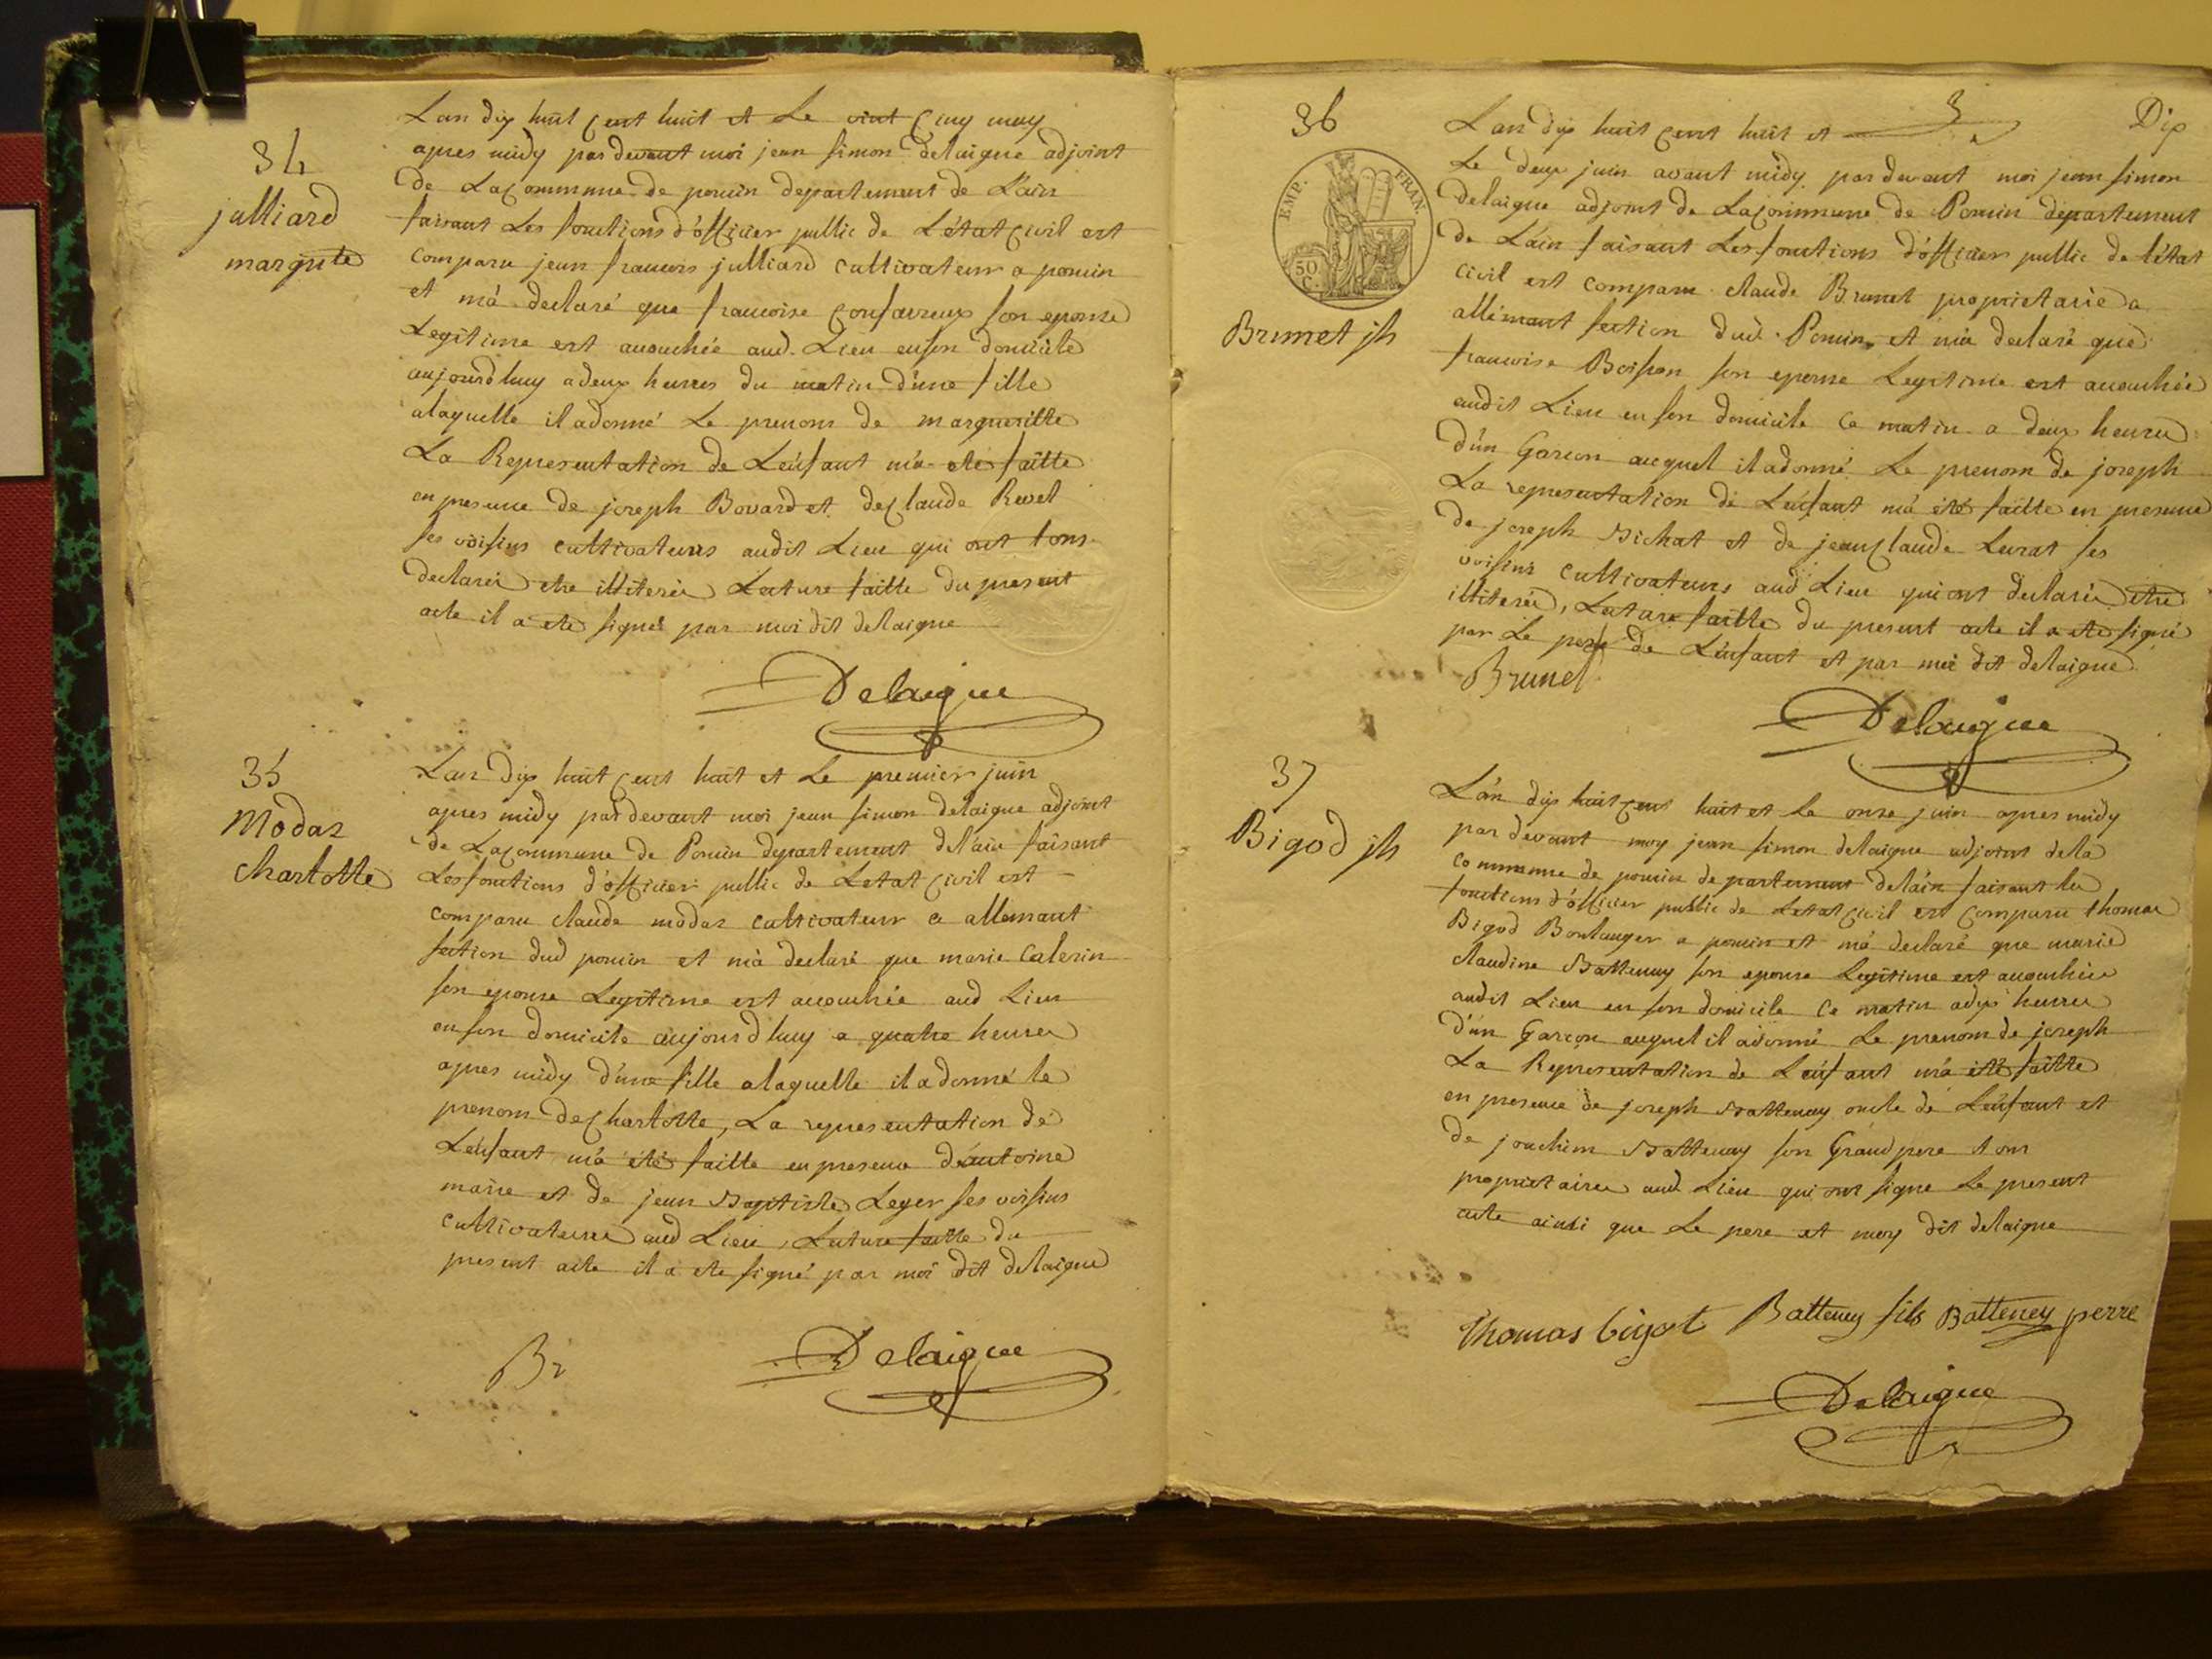 34
julliard
margte
Lan dix huit cent huit et Le vint cinq may
apres midy par devant moi jean simon delaigue adjoint
de La commune de poncin departement de Lain
faisant Les fonctions d'officier public de L'état civil est
comparu jean francois julliard cultivateur a poncin
et m'a declaré que francoise son epouse
Legitime est accouchée aud. Lieu en son domicile
aujourdhuy a deux heures du matin d'une fille
a laquelle il a donné Le prenom de margueritte
La Representation de L'enfant m'a eté faitte
en presence de joseph Bovard et de claude Revel
ses voisins cultivateurs audit Lieu qui ont tous
declarés etre illiterés Lecture faitte du present
acte il a eté signé par moi dit delaigue
Delaigue
35
Modas
charlotte
Lan dix huit cent huit et Le premier juin
apres midy par devant moi jean simon delaigue adjoint
de La commune de Poncin departement de lain faisant
Les fonctions d'officier public de L'etat civil est
comparu claude modas cultivateur a allemant
section dud poncin et m'a declaré que marie Calerin
son epouse Legitime est accouchée aud Lieu
en son domicile aujourdhuy a quatre heures
apres midy d'une fille a laquelle il a donné le
prenom de charlotte, La representation de
L'enfant m'a été faitte en presence d'antoine
maire et de jean Baptiste Leger ses voisins
cultivateurs aud Lieu, Lecture faitte du
present acte il a eté signé par moi dit delaigue
Br
Delaigue
3
Dix
36
EMP. FRAN.
50 C.
Brunet jh
Lan dix huit cent huit et
Le deux juin avant midy par devant moi jean simon
delaigue adjoint de La commune de Poncin departement
de L'ain faisant Les fonctions d'officier public de l'état
civil est comparu claude Brunet proprietaire a
allemant section dud. Poncin et m'a declaré que
francoise Boisson son epouse Legitime est accouchée
audit Lieu en son domicile ce matin a deux heures
d'un Garcon auquel il a donné Le prenom de joseph
La representation de L'enfant m'a été faitte en presence
de joseph Bichat et de jean claude Levrat ses
voisins cultivateurs aud Lieu qui ont declarés etre
illiterés, Lecture faitte du present acte il a eté signé
par Le pere de L'enfant et par moi dit delaigue
Brunet
Delaigue
37
Bigod jh
L'an dix huit cent huit et le onze juin apres midy
par devant moy jean simon delaigue adjoint de la
commune de poncin departement de l'ain faisant les
fonctions d'officier public de L'etat civil est comparu thomas
Bigod Boulanger a poncin et m'a declaré que marie
claudine Battenay son epouse Legitime est accouchée
audit Lieu en son domicile ce matin a dix heures
d'un Garçon auquel il a donné Le prenom de joseph
La Representation de L'enfant m'a été faitte
en presence de joseph Battenay oncle de L'enfant et
de joachim Battenay son Grand pere tous
proprietaires aud. Lieu qui ont signe Le present
acte ainsi que Le pere et moy dit delaigue
Thomas bigot Batteney fils Batteney perre
Delaigue